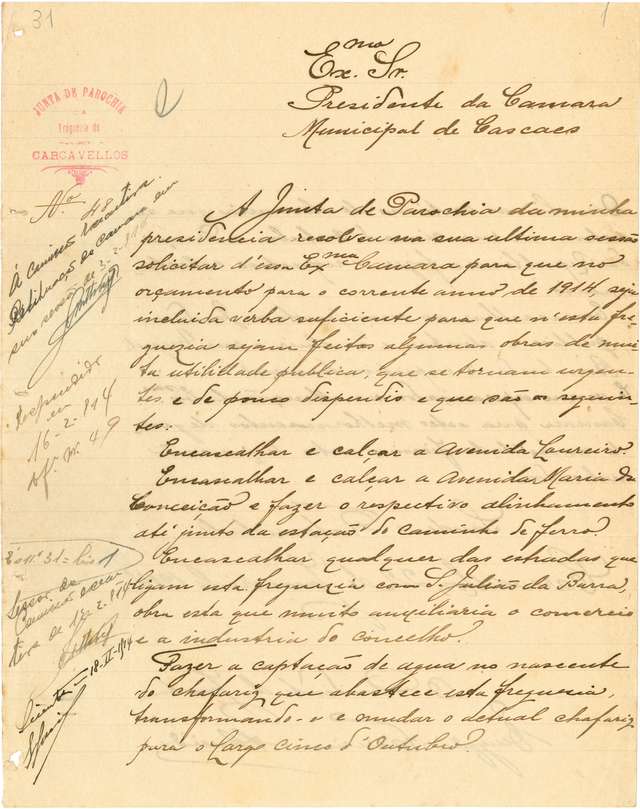 31
1
JUNTA DE PAROCHIA
DA
Freguezia de
CARCAVELLOS
Exmo. Sr.
Presidente da Camara
Municipal de Cascaes
Nº 48
Á commissão executiva.
Camara em
sua sessão de 2-2-914
Respondido
em
16-2-914
of. nº 49
A Junta de Parochia da minha
presidencia resolveu na sua ultima sessão
solicitar d'essa Exma Camara para que no
orçamento para o corrente anno, de 1914, seja
incluida verba sufficiente para que n'esta fre-
guezia sejam feitos algumas obras de mui-
ta utilidade publica, que se tornam urgen-
tes e de pouco dispendio e que são os seguin-
tes:
Encascalhar e calçar a Avenida Loureiro.
Encascalhar e calçar a Avenida Maria da
Conceição e fazer o respectivo alinhamento
até junto da estação do caminho de ferro.
Encascalhar qualquer das estradas que
ligam esta freguezia com S. Julião da Barra,
obra esta que muito auxiliaria o comercio
e a industria do concelho.
Fazer a captação de agua no nascente
do chafariz que abastece esta freguesia,
transformando-o e mudar o actual chafariz
para o Largo cinco d'Outubro.
nº 31
de 12-2-914
Sciente - 18-II-914